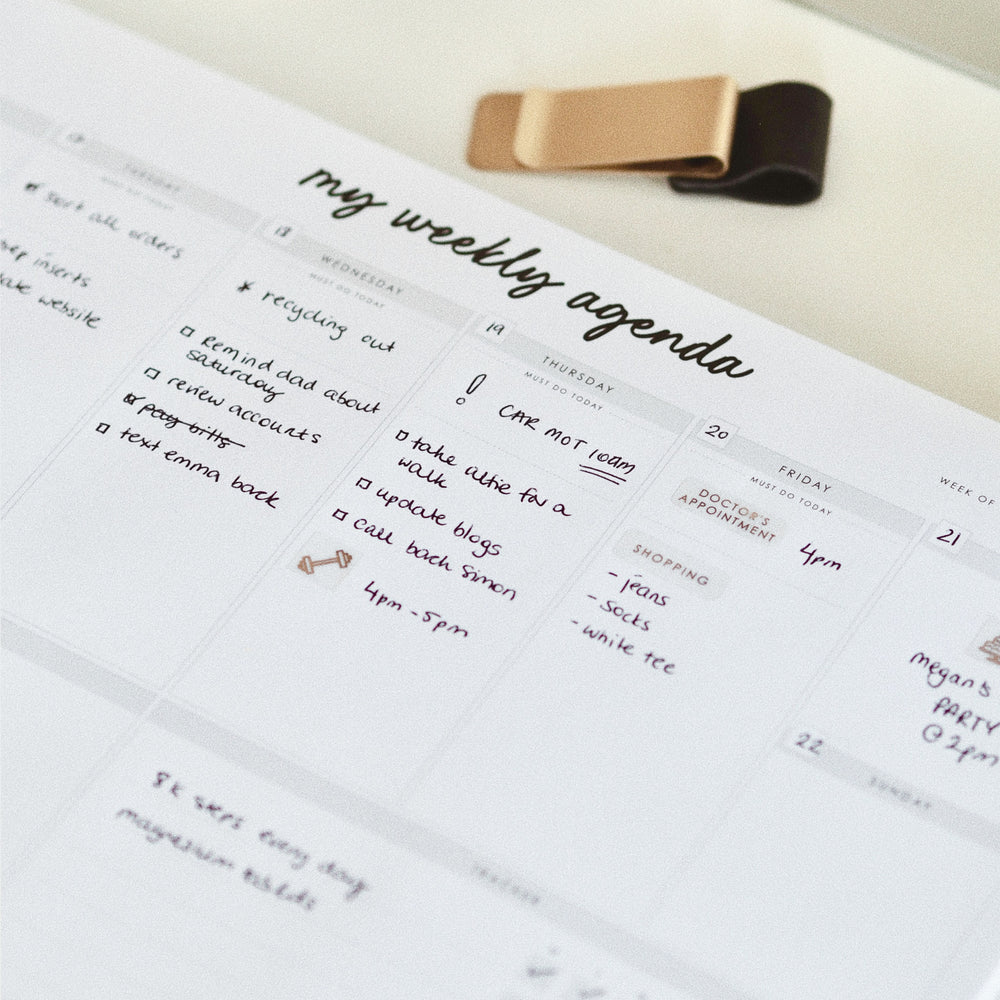 my weekly agenda
17
TUESDAY
MUST DO TODAY
* sort all orders
inserts
website
18
WEDNESDAY
MUST DO TODAY
* recycling out
remind dad about
saturday
review accounts
pay bills
text emma back
19
THURSDAY
MUST DO TODAY
! CAR MOT 10am
take alfie for a
walk
update blogs
call back simon
4pm - 5pm
20
FRIDAY
MUST DO TODAY
DOCTOR'S
APPOINTMENT
4pm
SHOPPING
- jeans
- socks
- white tee
WEEK OF
21
megan's
PARTY
@ 2pm
22
SUNDAY
TRACKER
8k steps every day
magnesium tablets